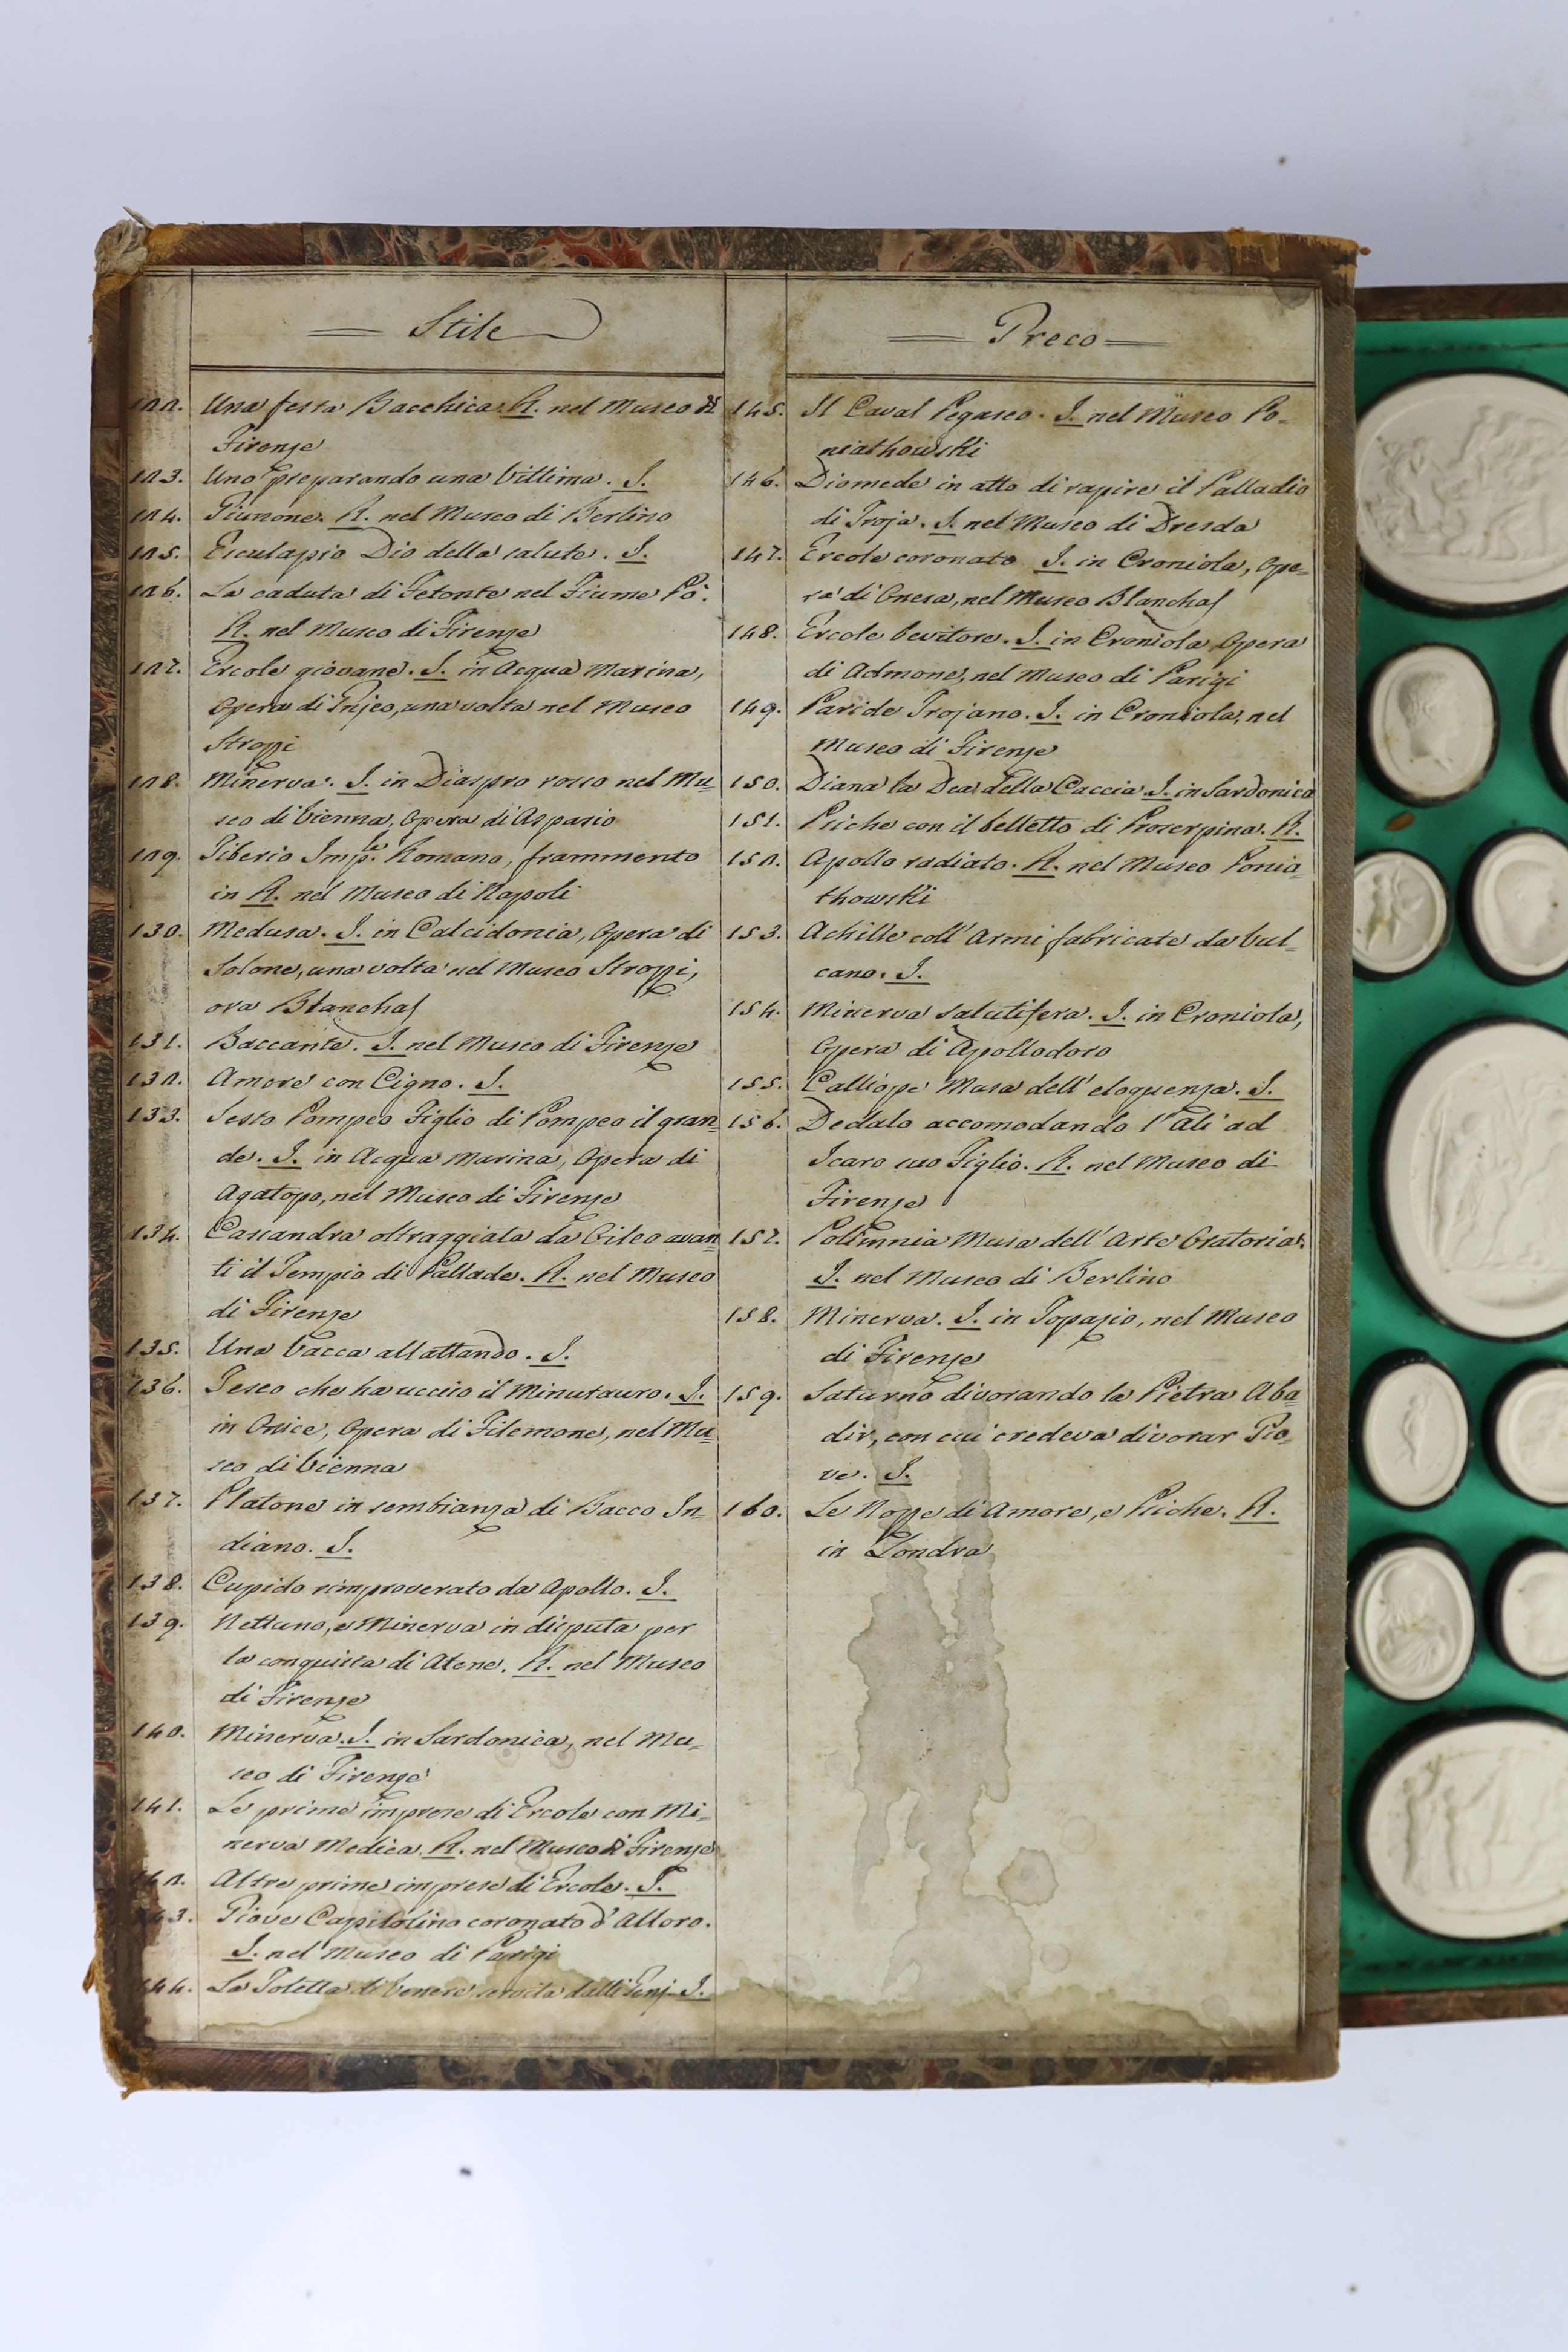 Stile
122. Una festa Bacchica. R. nel Museo di
Firenze
123. Uno preparando una Vittima. I.
124. Giunone. R. nel Museo di Berlino
125. Esculapio Dio della salute. I.
126. La caduta di Fetonte nel Fiume Pò.
R. nel Museo di Firenze
127. Ercole giovane. I. in Acqua Marina,
Opera di Gnjeo, una volta nel Museo
Strozzi
128. Minerva. I. in Diaspro rosso nel Mu=
seo di Vienna, Opera di Aspasio
129. Tiberio Imp.e Romano, frammento
in R. nel Museo di Napoli
130. Medusa. I. in Calcidonia, Opera di
Solone, una volta nel Museo Strozzi,
ora Blanchas
131. Baccante. I. nel Museo di Firenze
132. Amore con Cigno. I.
133. Sesto Pompeo Figlio di Pompeo il gran=
de. I. in Acqua marina, Opera di
Agatopo, nel Museo di Firenze
134. Cassandra oltraggiata da Oileo avan=
ti il Tempio di Pallade. R. nel Museo
di Firenze
135. Una Vacca allattando. I.
136. Teseo che ha ucciso il Minutauro. I.
in Onice, Opera di Filemone, nel Mu=
seo di Vienna
137. Platone in sembianza di Bacco In=
diano. I.
138. Cupido rimproverato da Apollo. I.
139. Nettuno, e Minerva in disputa per
la conquista di Atene. R. nel Museo
di Firenze
140. Minerva. I. in Sardonica, nel Mu=
seo di Firenze
141. Le prime imprese di Ercole con Mi=
nerva Medica. R. nel Museo di Firenze
142. Altre prime imprese di Ercole. I.
143. Giove Capitolino coronato d'Alloro.
I. nel Museo di Parigi
144. La Toletta di Venere servita dalli Genj. I.
Greco
145. Il Caval Pegaseo. I. nel Museo Po=
niathowski
146. Diomede in atto di rapire il Palladio
di Troja. I. nel Museo di Dresda
147. Ercole coronato I. in Croniola, Ope=
ra di Onesa, nel Museo Blanchas
148. Ercole bevitore. I. in Croniola, Opera
di Admone, nel Museo di Parigi
149. Paride Trojano. I. in Croniola, nel
Museo di Firenze
150. Diana la Dea della Caccia I. in Sardonica
151. Psiche con il belletto di Proserpina. R.
152. Apollo radiato. R. nel Museo Ponia=
thowski
153. Achille coll'Armi fabricate da Vul=
cano. I.
154. Minerva salutifera. I. in Croniola,
Opera di Apollodoro
155. Calliope Musa dell'eloquenza. I.
156. Dedalo accomodando l'Ali ad
Icaro suo Figlio. R. nel Museo di
Firenze
157. Polimnia Musa dell'Arte Oratoria.
I. nel Museo di Berlino
158. Minerva. I. in Topazio, nel Museo
di Firenze
159. Saturno divorando la Pietra Aba=
dir, con cui credeva divorar Gio=
ve. I.
160. Le Nozze di Amore, e Psiche. R.
in Londra